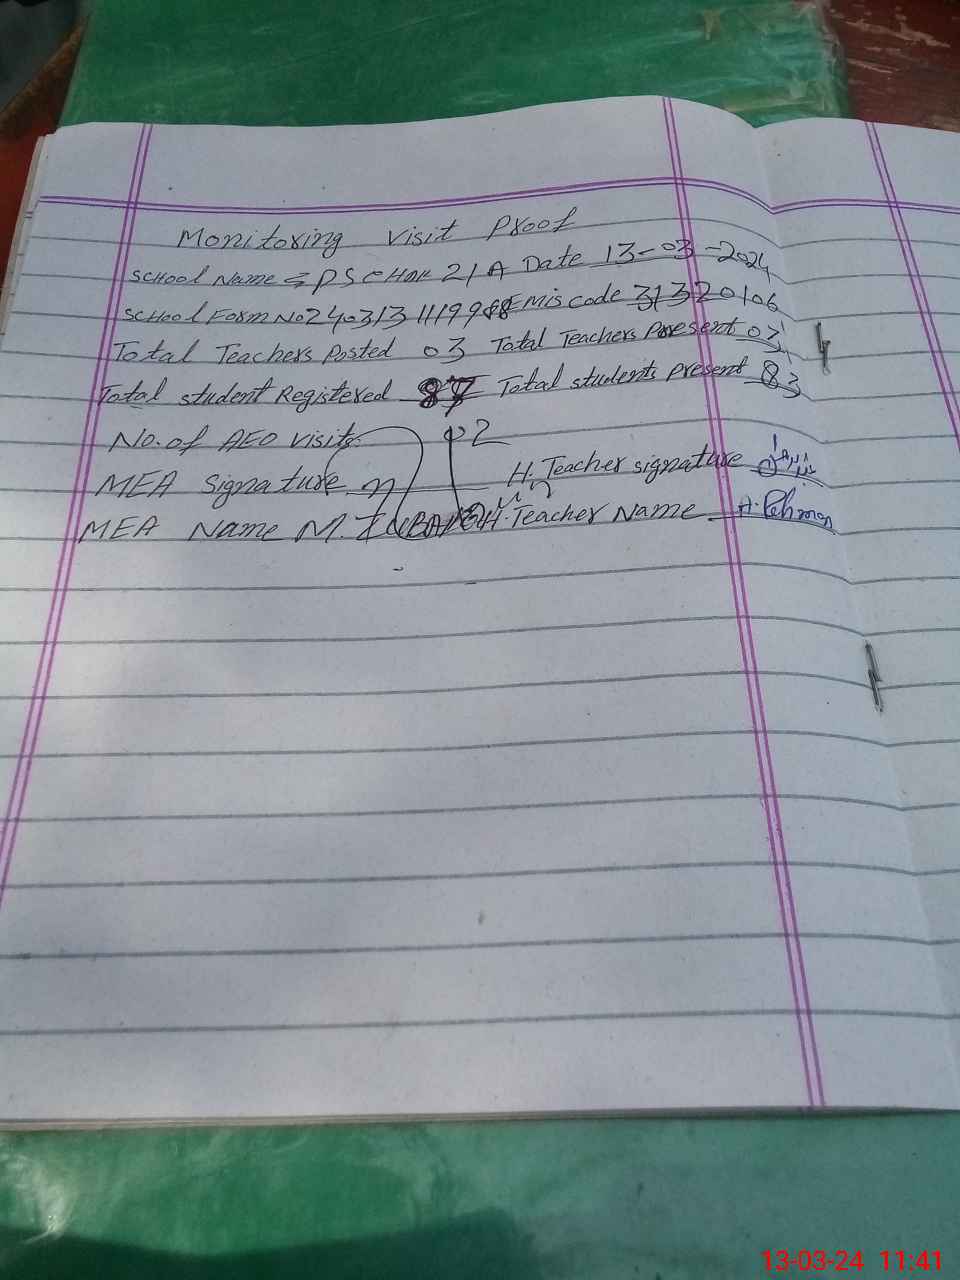 Monitoring Visit Proof
School Name = PS CHAK 21 A Date 13-03-2024
School Form No 240313 1119988 Emis code 31320106
Total Teachers Posted 03 Total Teachers Present 03
Total student Registered 87 Total students present 83
No. of AEO visits 02
MEA Signature H. Teacher signature
MEA Name M. H. Teacher Name A. Rehman
13-03-24 11:41